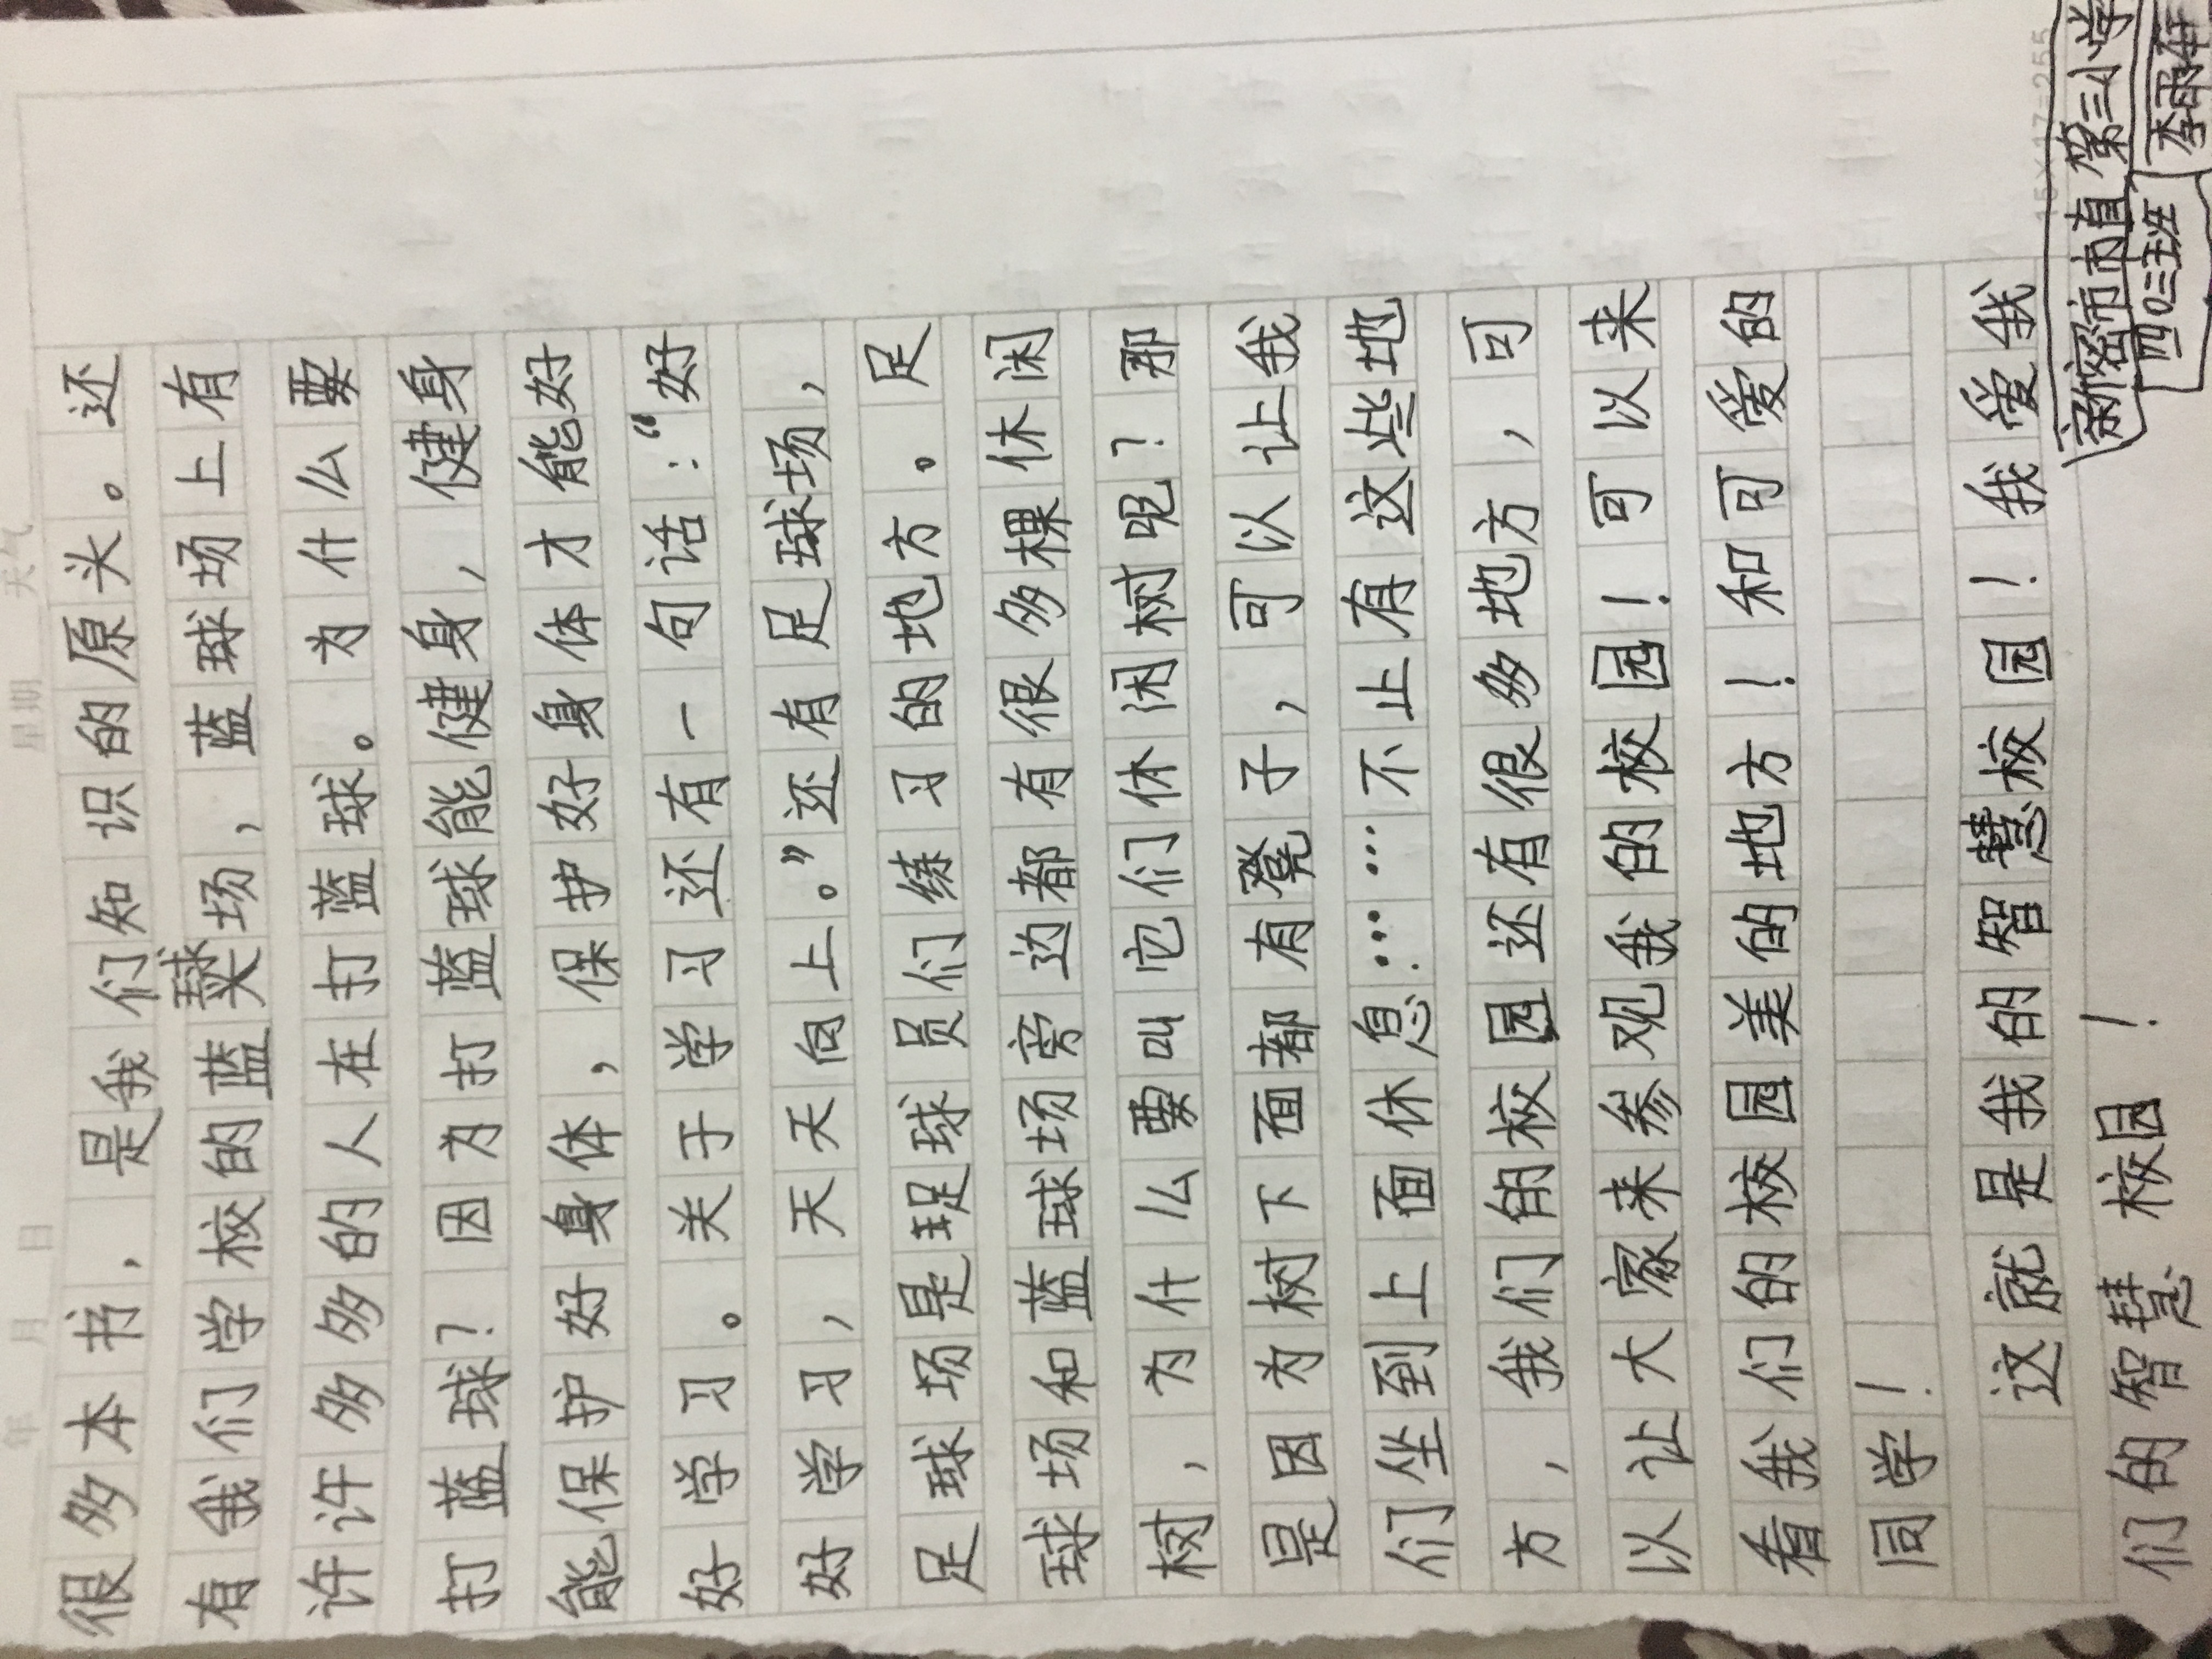 年 月 日 星期 天气
很多本书，是我们知识的原头。还
有我们学校的蓝球场，蓝球场上有
许许多多的人在打蓝球。为什么要
打蓝球？因为打蓝球能健身，健身
能保护好身体，保护好身体才能好
好学习。关于学习还有一句话：“好
好学习，天天向上。”还有足球场，
足球场是足球员们练习的地方。足
球场和蓝球场旁边都有很多棵休闲
树，为什么要叫它们休闲树呢？那
是因为树下面都有凳子，可以让我
们坐到上面休息……不止有这些地
方，我们的校园还有很多地方，可
以让大家来参观我的校园！可以来
看我们的校园美的地方！和可爱的
同学！
这就是我的智慧校园！我爱我
们的智慧校园！
15×17=255
新密市市直第三小学
四0三班 李雨